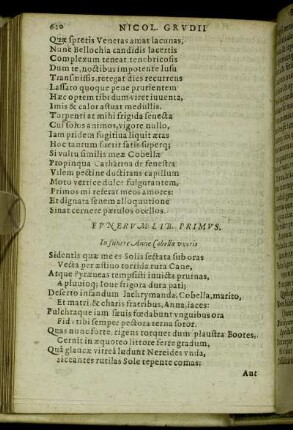 620 NICOL. GRVDII
Quæ spretis Venetas amat lacunas,
Nunc Bellochia candidis lacertis
Complexum teneat tenebricosis
Dum te, noctibus impotente lusu
Transmissis, retegat dies recurrens
Lassato quoque pene prurientem
Hæc optem tibi dum viret iuuenta,
Imis & calor æstuat medullis.
Torpenti at mihi frigida senecta
Cui solos animos, vigore nullo,
Iam pridem fugitiua liquit ætas
Hoc tantum fuerit satis superq;
Si vultu similis meæ Cobellæ
Propinqua Catharina de fenestra
Vilem pectine ductitans capillum
Moto vertice dulce fulgurantem,
Primos mi referat meos amores:
Et dignata senem alloquutione
Sinat cernere pætulos ocellos.
FVNERVM LIB. PRIMVS.
In funere Annæ Cobellæ vxoris
Sidentis quæ me es Solis sectata sub oras
Vecta per æstiuo torrida rura Cane,
Atque Pyræneas tempsisti inuicta pruinas,
A pluuioq; Ioue frigora dura pati;
Deserto infandum lachrymanda, Cobella, marito,
Et matri, & charis fratribus, Anna, iaces:
Pulchraque iam sæuis fœdabunt vnguibus ora
Fida tibi semper pectora terna soror.
Quas nunc forte, rigens torquet dum plaustra Bootes,
Cernit in æquoreo littore ferre gradum,
Quâ glaucæ vitreâ ludunt Nereides vnda,
siccantes rutilas Sole repente comas:
Aut